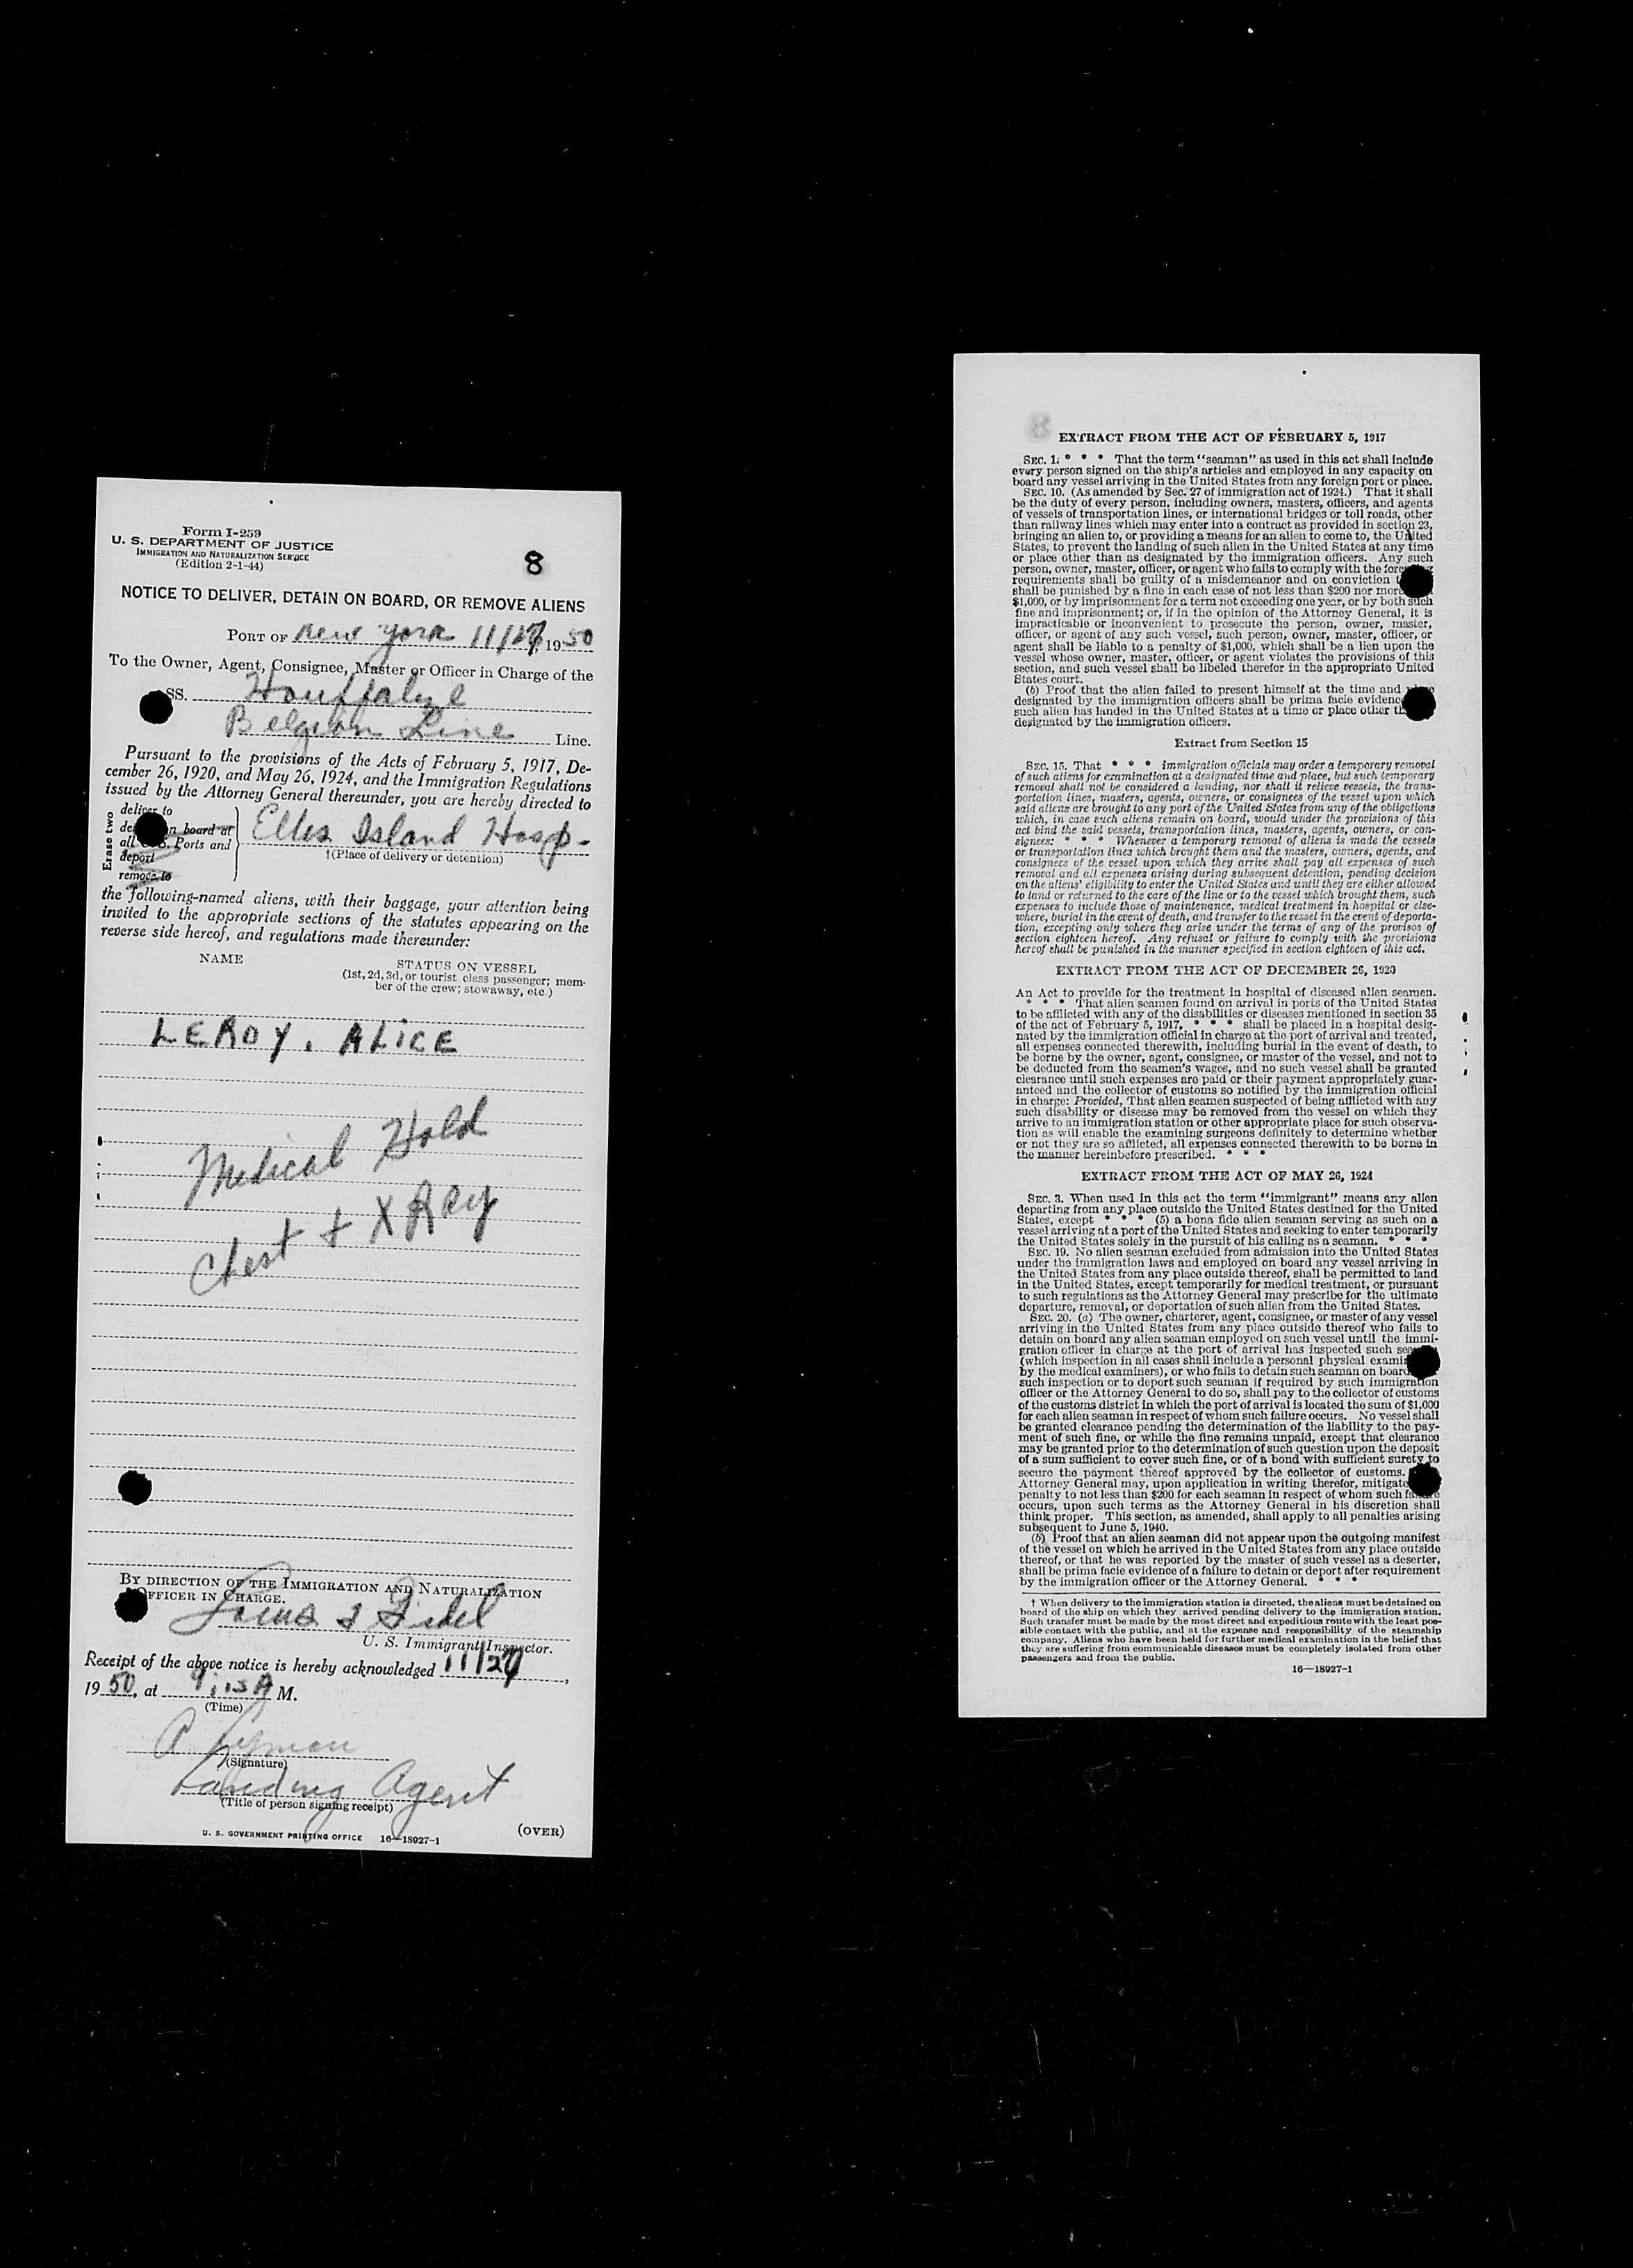 Form I-259
U. S. DEPARTMENT OF JUSTICE
IMMIGRATION AND NATURALIZATION SERVICE
(Edition 2-1-44)
8
NOTICE TO DELIVER, DETAIN ON BOARD, OR REMOVE ALIENS
PORT OF New York 11/27, 1950
To the Owner, Agent, Consignee, Master or Officer in Charge of the
SS.
Belgian Line Line.
Pursuant to the provisions of the Acts of February 5, 1917, De-
cember 26, 1920, and May 26, 1924, and the Immigration Regulations
issued by the Attorney General thereunder, you are hereby directed to
Erase two
deliver to
n board at
all Ports and
deport
remove to
Ellis Island Hosp.
†(Place of delivery or detention)
the following-named aliens, with their baggage, your attention being
invited to the appropriate sections of the statutes appearing on the
reverse side hereof, and regulations made thereunder:
NAME
STATUS ON VESSEL
(1st, 2d, 3d, or tourist class passenger; mem-
ber of the crew; stowaway, etc.)
LEROY, ALICE
Medical Hold
Chest + X Ray
BY DIRECTION OF THE IMMIGRATION AND NATURALIZATION
OFFICER IN CHARGE.
U. S. Immigrant Inspector.
Receipt of the above notice is hereby acknowledged 11/27,
1950, at 9:15 A M.
(Time)
(Signature)
Landing Agent
(Title of person signing receipt)
U. S. GOVERNMENT PRINTING OFFICE 16—18927-1
(OVER)
EXTRACT FROM THE ACT OF FEBRUARY 5, 1917
SEC. 1. * * * That the term "seaman" as used in this act shall include
every person signed on the ship's articles and employed in any capacity on
board any vessel arriving in the United States from any foreign port or place.
SEC. 10. (As amended by Sec. 27 of immigration act of 1924.) That it shall
be the duty of every person, including owners, masters, officers, and agents
of vessels of transportation lines, or international bridges or toll roads, other
than railway lines which may enter into a contract as provided in section 23,
bringing an alien to, or providing a means for an alien to come to, the United
States, to prevent the landing of such alien in the United States at any time
or place other than as designated by the immigration officers. Any such
person, owner, master, officer, or agent who fails to comply with the foregoing
requirements shall be guilty of a misdemeanor and on conviction
shall be punished by a fine in each case of not less than $200 nor more
$1,000, or by imprisonment for a term not exceeding one year, or by both such
fine and imprisonment; or, if in the opinion of the Attorney General, it is
impracticable or inconvenient to prosecute the person, owner, master,
officer, or agent of any such vessel, such person, owner, master, officer, or
agent shall be liable to a penalty of $1,000, which shall be a lien upon the
vessel whose owner, master, officer, or agent violates the provisions of this
section, and such vessel shall be libeled therefor in the appropriate United
States court.
(b) Proof that the alien failed to present himself at the time and place
designated by the immigration officers shall be prima facie evidence
such alien has landed in the United States at a time or place other
designated by the immigration officers.
Extract from Section 15
SEC. 15. That * * * immigration officials may order a temporary removal
of such aliens for examination at a designated time and place, but such temporary
removal shall not be considered a landing, nor shall it relieve vessels, the trans-
portation lines, masters, agents, owners, or consignees of the vessel upon which
said aliens are brought to any port of the United States from any of the obligations
which, in case such aliens remain on board, would under the provisions of this
act bind the said vessels, transportation lines, masters, agents, owners, or con-
signees: * * * Whenever a temporary removal of aliens is made the vessels
or transportation lines which brought them and the masters, owners, agents, and
consignees of the vessel upon which they arrive shall pay all expenses of such
removal and all expenses arising during subsequent detention, pending decision
on the aliens' eligibility to enter the United States and until they are either allowed
to land or returned to the care of the line or to the vessel which brought them, such
expenses to include those of maintenance, medical treatment in hospital or else-
where, burial in the event of death, and transfer to the vessel in the event of deporta-
tion, excepting only where they arise under the terms of any of the provisos of
section eighteen hereof. Any refusal or failure to comply with the provisions
hereof shall be punished in the manner specified in section eighteen of this act.
EXTRACT FROM THE ACT OF DECEMBER 26, 1920
An Act to provide for the treatment in hospital of diseased alien seamen.
* * * That alien seamen found on arrival in ports of the United States
to be afflicted with any of the disabilities or diseases mentioned in section 35
of the act of February 5, 1917, * * * shall be placed in a hospital desig-
nated by the immigration official in charge at the port of arrival and treated,
all expenses connected therewith, including burial in the event of death, to
be borne by the owner, agent, consignee, or master of the vessel, and not to
be deducted from the seamen's wages, and no such vessel shall be granted
clearance until such expenses are paid or their payment appropriately guar-
anteed and the collector of customs so notified by the immigration official
in charge: Provided, That alien seamen suspected of being afflicted with any
such disability or disease may be removed from the vessel on which they
arrive to an immigration station or other appropriate place for such observa-
tion as will enable the examining surgeons definitely to determine whether
or not they are so afflicted, all expenses connected therewith to be borne in
the manner hereinbefore prescribed. * * *
EXTRACT FROM THE ACT OF MAY 26, 1924
SEC. 3. When used in this act the term "immigrant" means any alien
departing from any place outside the United States destined for the United
States, except * * * (5) a bona fide alien seaman serving as such on a
vessel arriving at a port of the United States and seeking to enter temporarily
the United States solely in the pursuit of his calling as a seaman. * * *
SEC. 19. No alien seaman excluded from admission into the United States
under the immigration laws and employed on board any vessel arriving in
the United States from any place outside thereof, shall be permitted to land
in the United States, except temporarily for medical treatment, or pursuant
to such regulations as the Attorney General may prescribe for the ultimate
departure, removal, or deportation of such alien from the United States.
SEC. 20. (a) The owner, charterer, agent, consignee, or master of any vessel
arriving in the United States from any place outside thereof who fails to
detain on board any alien seaman employed on such vessel until the immi-
gration officer in charge at the port of arrival has inspected such seaman
(which inspection in all cases shall include a personal physical
by the medical examiners), or who fails to detain such seaman on board
such inspection or to deport such seaman if required by such immigration
officer or the Attorney General to do so, shall pay to the collector of customs
of the customs district in which the port of arrival is located the sum of $1,000
for each alien seaman in respect of whom such failure occurs. No vessel shall
be granted clearance pending the determination of the liability to the pay-
ment of such fine, or while the fine remains unpaid, except that clearance
may be granted prior to the determination of such question upon the deposit
of a sum sufficient to cover such fine, or of a bond with sufficient surety to
secure the payment thereof approved by the collector of customs.
Attorney General may, upon application in writing therefor, mitigate
penalty to not less than $200 for each seaman in respect of whom such failure
occurs, upon such terms as the Attorney General in his discretion shall
think proper. This section, as amended, shall apply to all penalties arising
subsequent to June 5, 1940.
(b) Proof that an alien seaman did not appear upon the outgoing manifest
of the vessel on which he arrived in the United States from any place outside
thereof, or that he was reported by the master of such vessel as a deserter,
shall be prima facie evidence of a failure to detain or deport after requirement
by the immigration officer or the Attorney General. * * *
† When delivery to the immigration station is directed, the aliens must be detained on
board of the ship on which they arrived pending delivery to the immigration station.
Such transfer must be made by the most direct and expeditious route with the least pos-
sible contact with the public, and at the expense and responsibility of the steamship
company. Aliens who have been held for further medical examination in the belief that
they are suffering from communicable diseases must be completely isolated from other
passengers and from the public.
16—18927-1